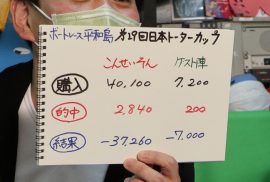 ボートレース平和島 第29回日本トーターカップ
こんせいそん ゲスト陣
購入 40,100 7,200
的中 2,840 200
結果 -37,260 -7,000